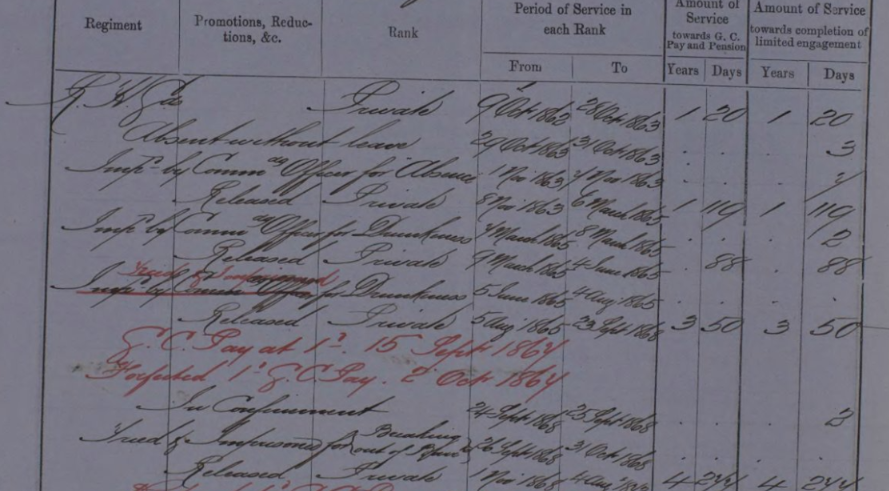 Regiment Promotions, Reduc-tions, &c. Rank Period of Service in each Rank Amount of Service towards G. C. Pay and Pension Amount of Service towards completion of limited engagement
From To Years Days Years Days
R. H. Gds Private 9 Oct 1862 28 Oct 1863 1 20 1 20
Absent without leave 29 Oct 1863 31 Oct 1863 . . . 3
Impd. by Commg Officer for Absence 1 Nov 1863 7 Nov 1863 . . . 7
Released Private 8 Nov 1863 6 March 1865 1 119 1 119
Impd. by Commg Officer for Drunkness 7 March 1865 8 March 1865 . . . 2
Released Private 9 March 1865 4 June 1865 . 88 . 88
Tried & Imprisoned
Impd. by Commg Officer for Drunkness 5 June 1865 4 Aug 1865 . . . .
Released Private 5 Aug 1865 23 Sept 1868 3 50 3 50
G. C. Pay at 1d. 15 Sept 1864
Forfeited 1d G. C. Pay. 2 Oct 1864
In Confinement 24 Sept 1868 25 Sept 1868 . . . 2
Tried & Imprisoned for Breaking out of 26 Sept 1868 31 Oct 1868 . . . .
Released Private 1 Nov 1868 4 244 4 244